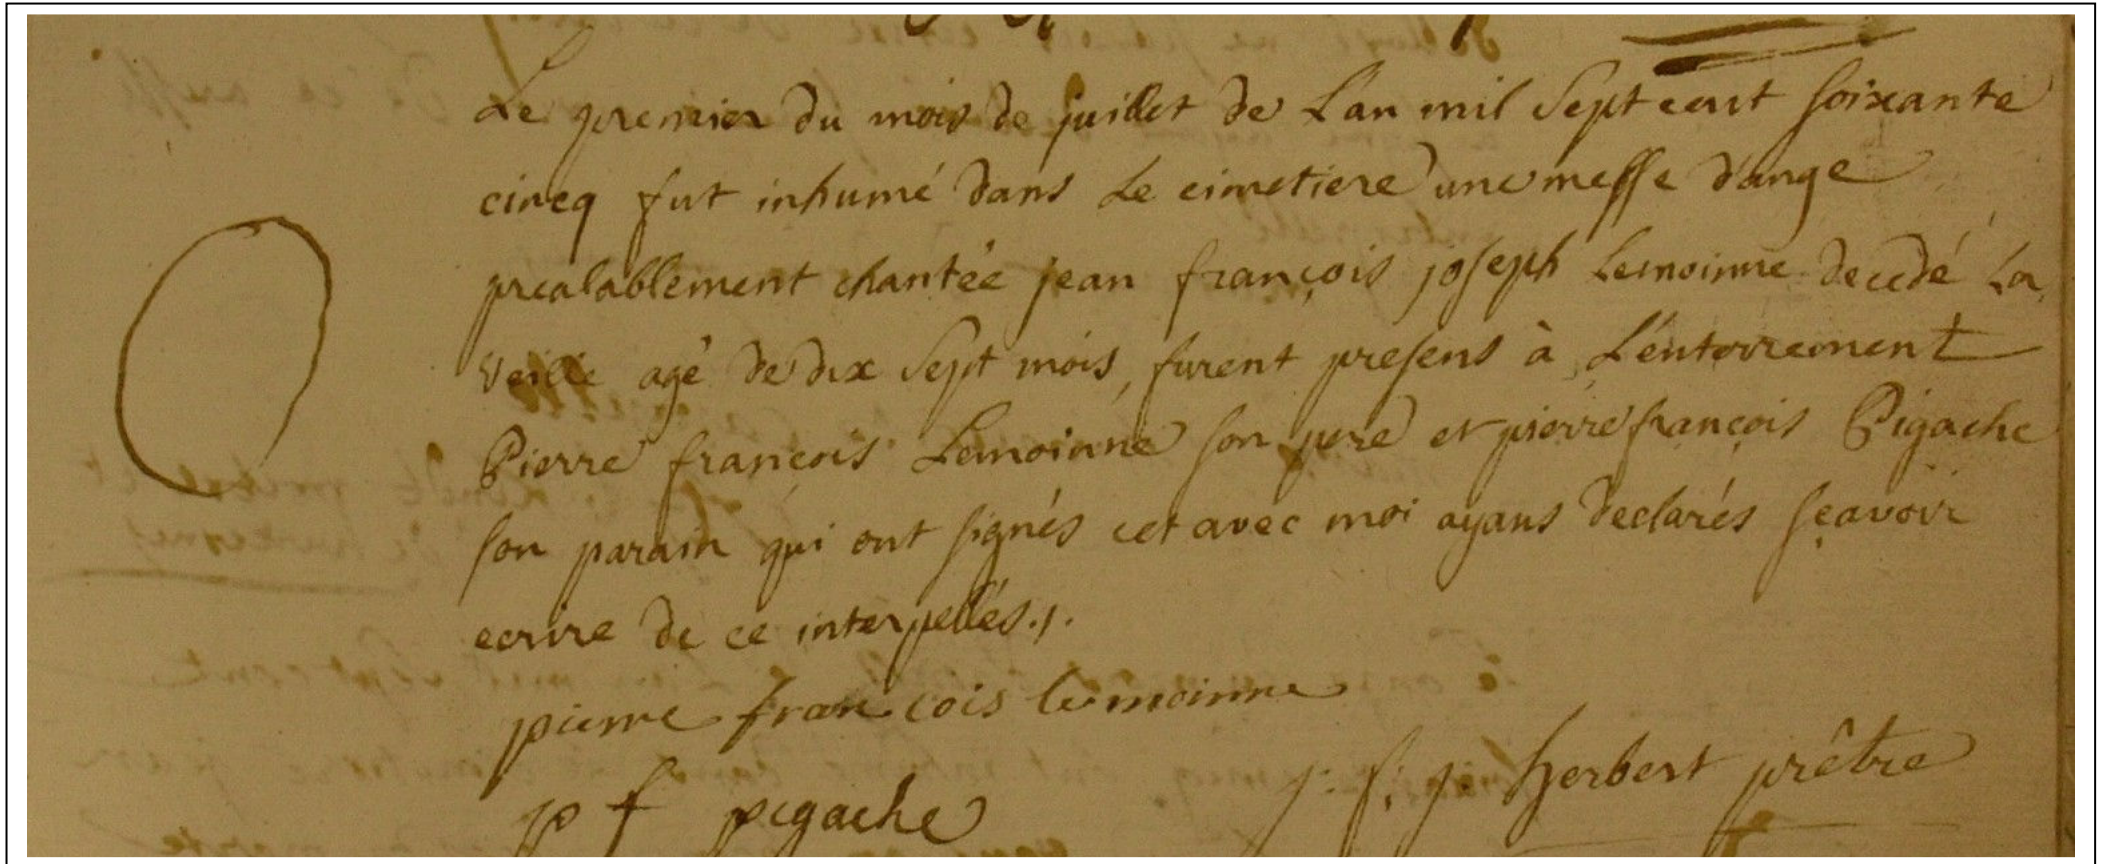 Le premier du mois de juillet de L'an mil Sept cent soixante
cincq fut inhumé dans Le cimetiere une messe d'ange
prealablement chantée jean françois joseph Lemoinne decedé La
Veille agé de dix Sept mois, furent presens à L'enterrement
Pierre françois Lemoinne son pere et pierre françois Pigache
son parain qui ont signés cet avec moi ayans declarés sçavoir
ecrire de ce interpellés./.
pierre francois lemoinne
p f pigache
j: f: j: herbert prêtre